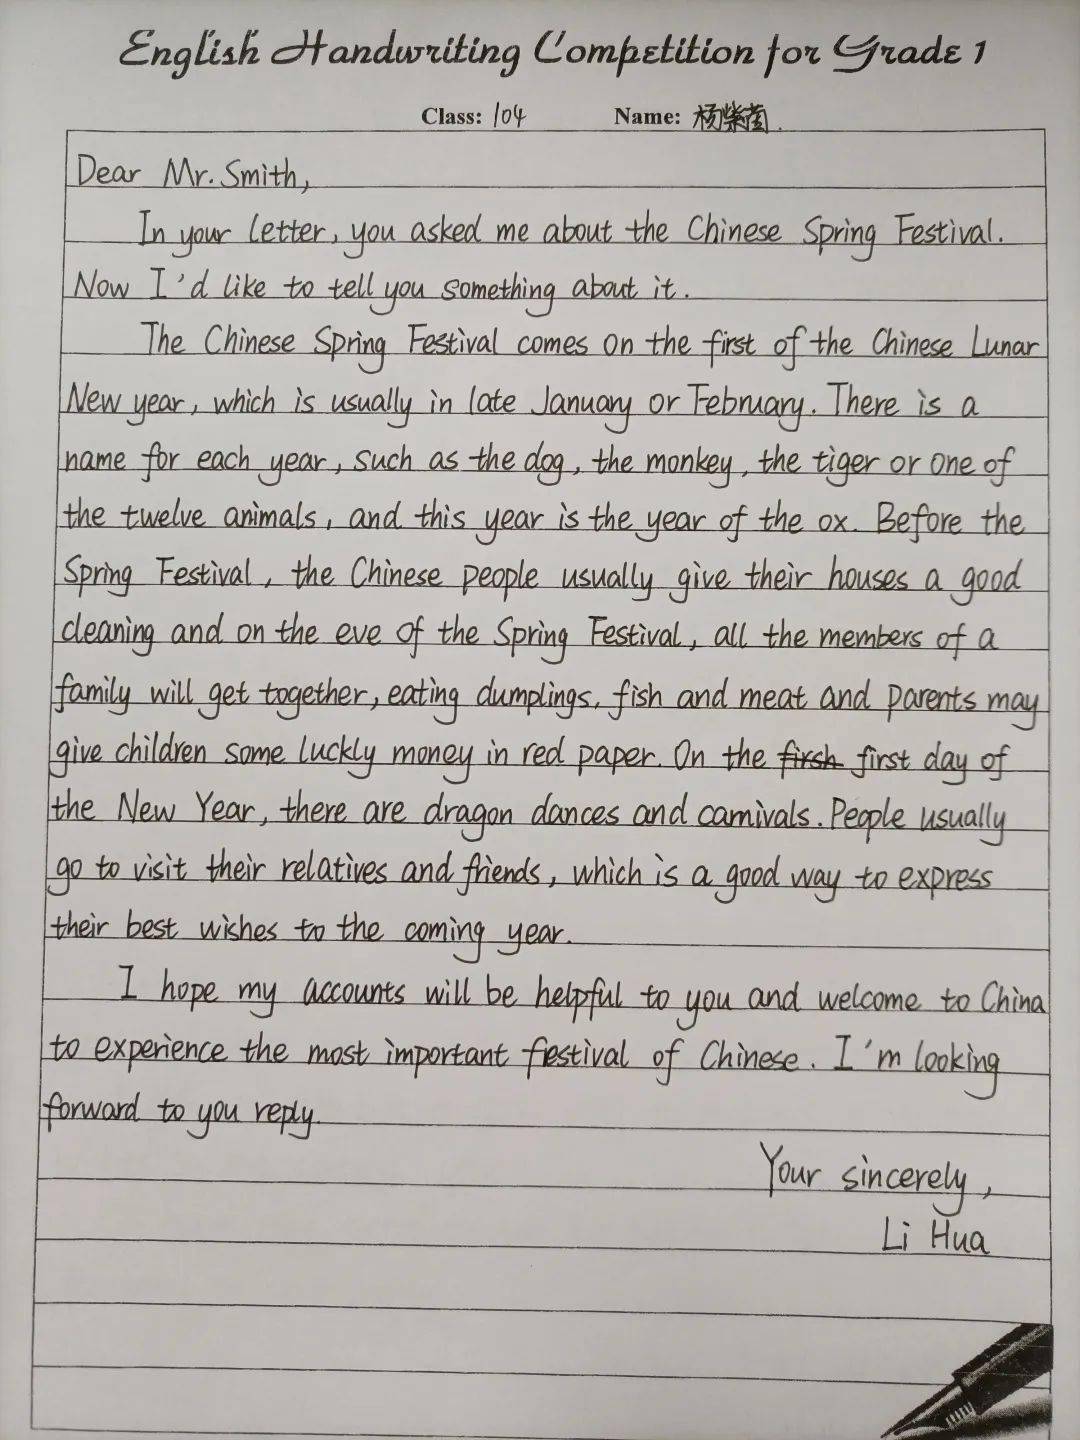 English Handwriting Competition for Grade 1
Class: 104 Name: 杨紫茵
Dear Mr. Smith,
In your letter, you asked me about the Chinese Spring Festival.
Now I'd like to tell you something about it.
The Chinese Spring Festival comes on the first of the Chinese Lunar
New year, which is usually in late January or February. There is a
name for each year, such as the dog, the monkey, the tiger or one of
the twelve animals, and this year is the year of the ox. Before the
Spring Festival, the Chinese people usually give their houses a good
cleaning and on the eve of the Spring Festival, all the members of a
family will get together, eating dumplings, fish and meat and parents may
give children some luckly money in red paper. On the firsh first day of
the New Year, there are dragon dances and carnivals. People usually
go to visit their relatives and friends, which is a good way to express
their best wishes to the coming year.
I hope my accounts will be helpful to you and welcome to China
to experience the most important festival of Chinese. I'm looking
forward to you reply.
Your sincerely,
Li Hua